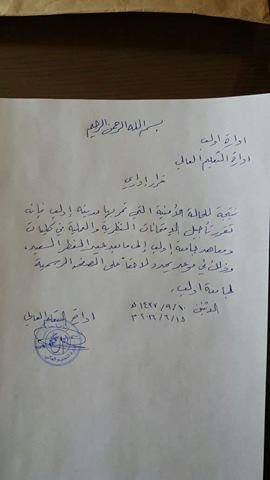 بسم الله الرحمن الرحيم
ادارة ادلب
ادارة التعليم العالي
قرار إداري
نتيجة للحالة الأمنية التي تمر بها مدينة إدلب فإنه
تقرر تأجيل الامتحانات النظرية والعملية في كليات
ومعاهد جامعة ادلب إلى ما بعد عيد الفطر السعيد،
وذلك في موعد يحدد لاحقاً على الصفحة الرسمية
لجامعة ادلب.
١٤٣٧/٩/١٠ هـ
٢٠١٦/٦/١٥ م
ادارة التعليم العالي